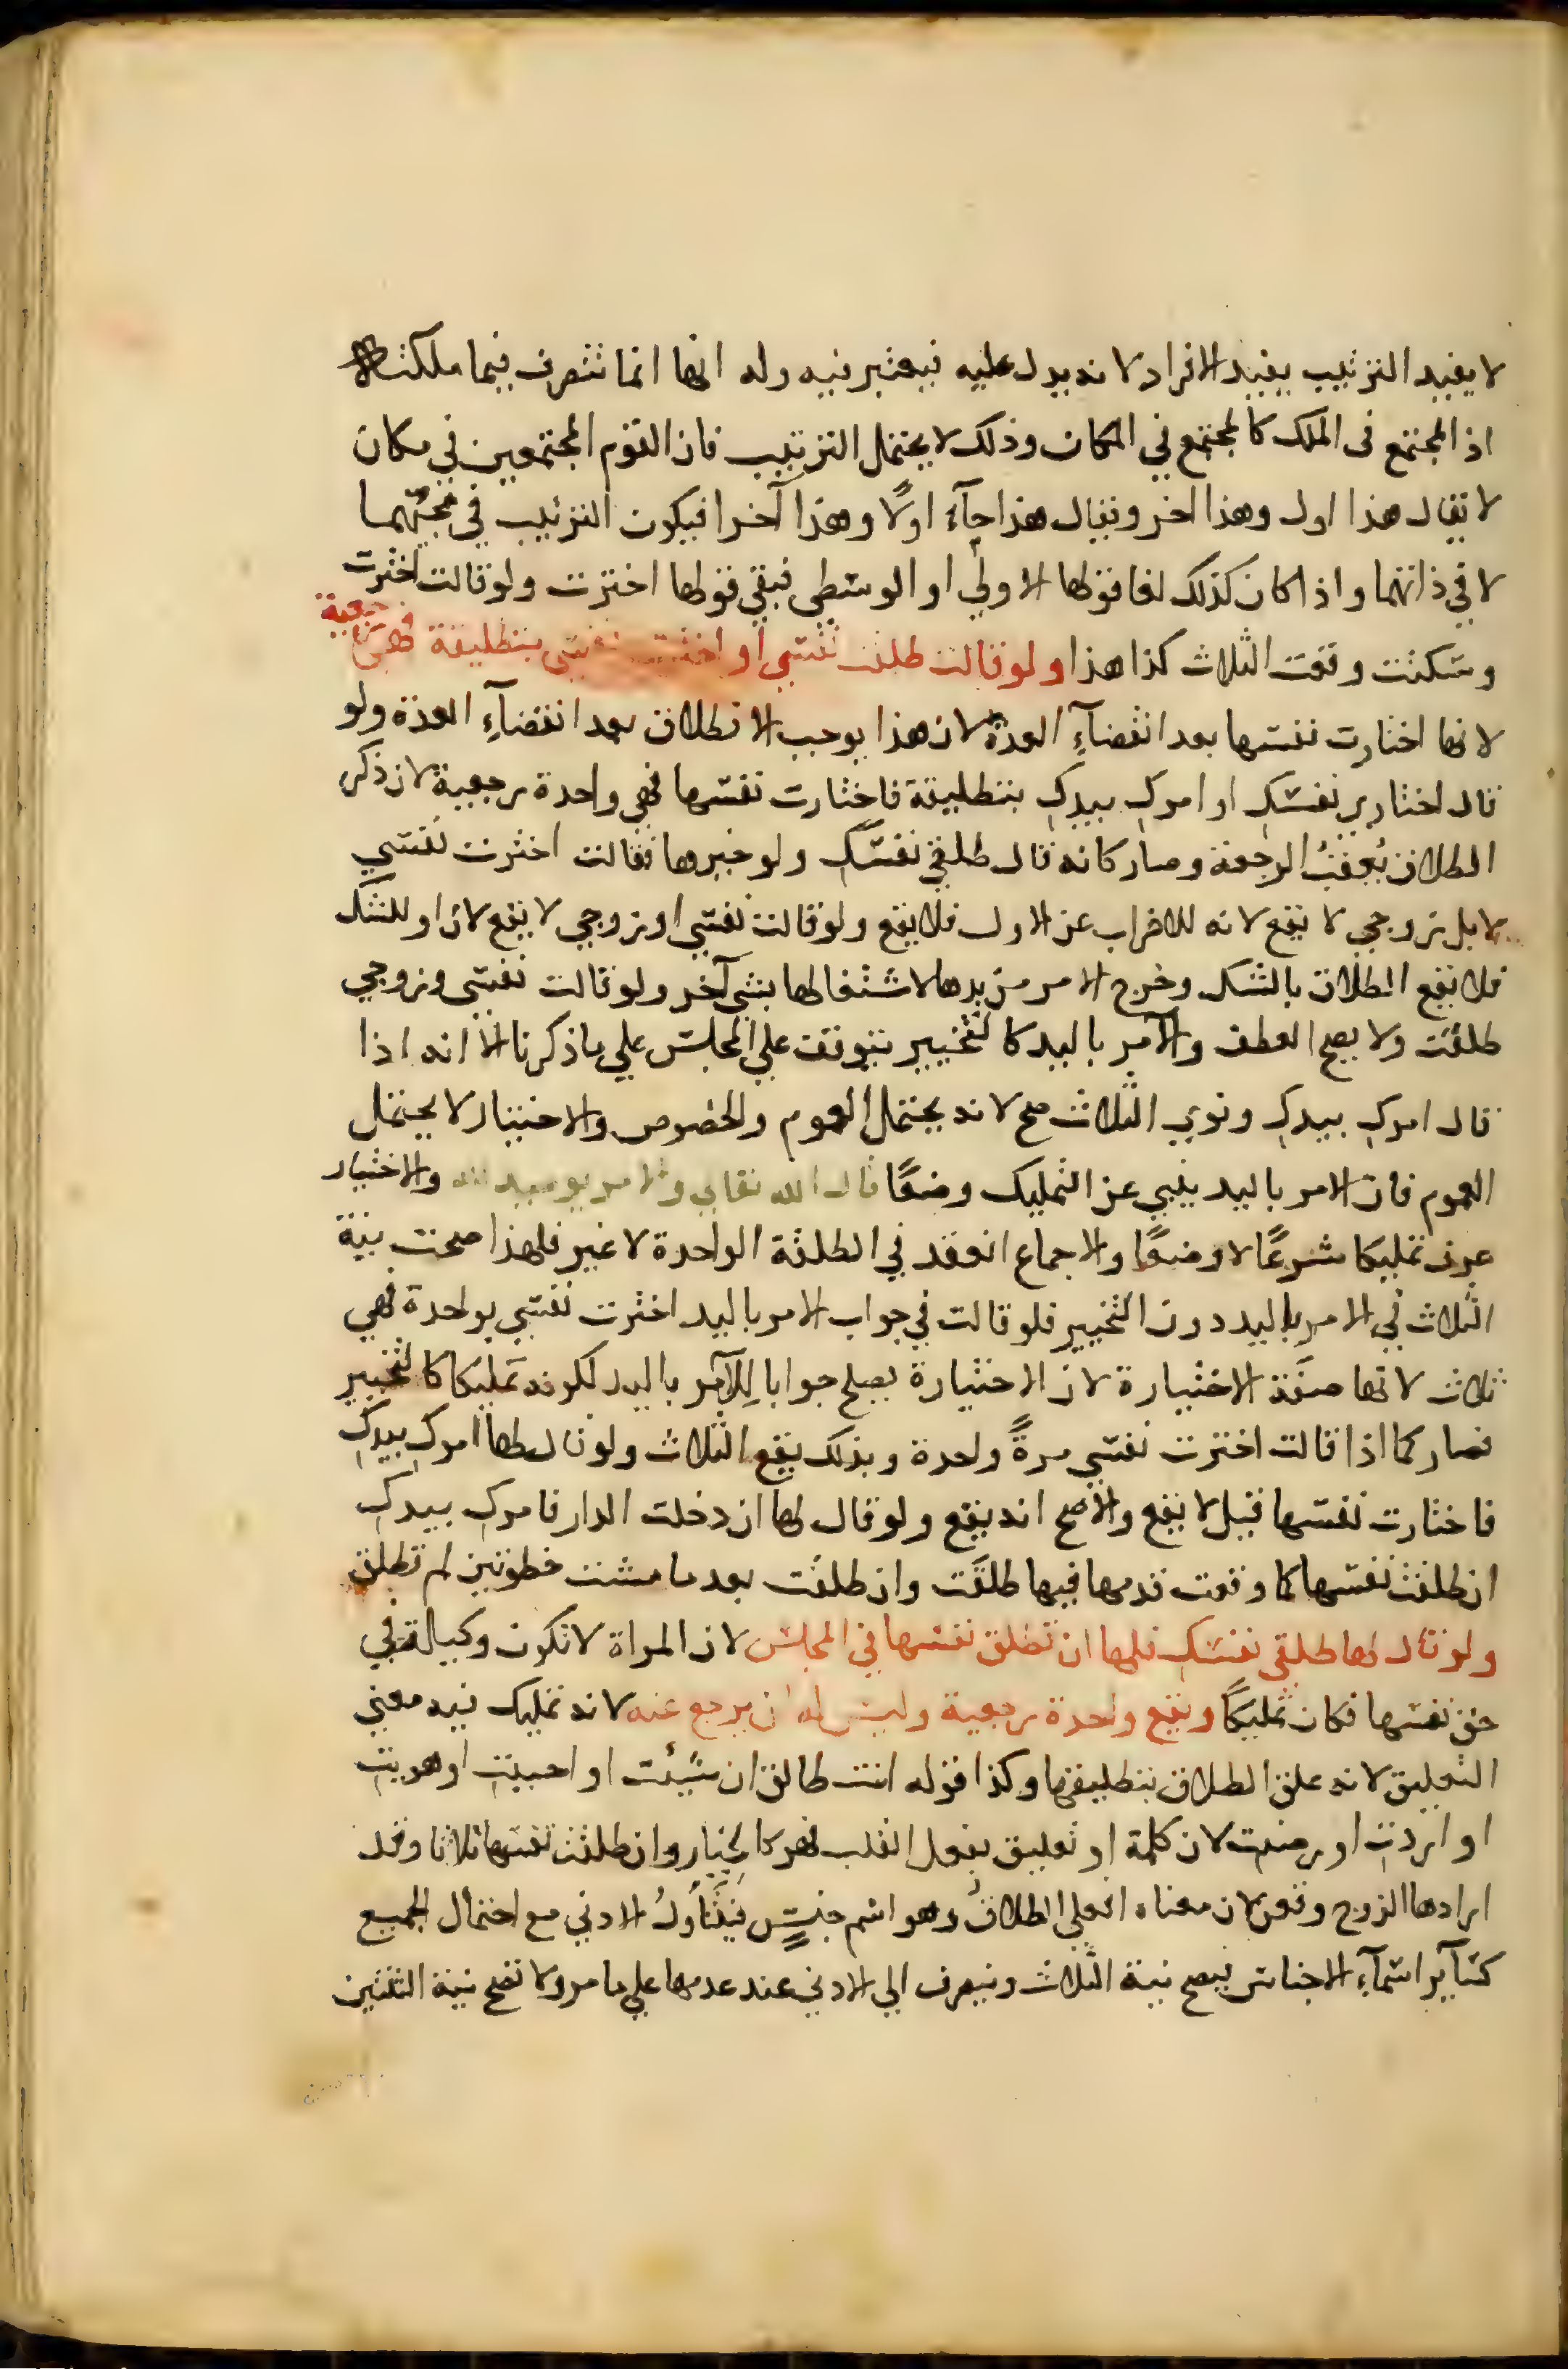 لا يفيد الترتيب يفيد الافراد لانه يدل عليه فيعتبر فيه وله انها انما تتصرف فيما ملكته
اذ المجتمع فى الملك كالمجتمع في المكان وذلك لا يحتمل الترتيب فان القوم المجتمعين في مكان
لا يقال هذا اول وهذا اخر ويقال هذا جآء اولًا وهذا آخرا فيكون الترتيب في مجيئهما
لا في ذاتهما واذا كان كذلك لغا قولها الاولي او الوسطي فبقي قولها اخترت ولو قالت اخترت
وسكتت وقعت الثلاث كذا هذا ولو قالت طلقت نفسي او اخترت نفسي بتطليقة فهي رجعية
لانها اختارت نفسها بعد انقضآء العدة لان هذا يوجب الانطلاق بعد انقضآء العدة ولو
قال اختاري نفسك او امرك بيدك بتطليقة فاختارت نفسها فهي واحدة رجعية لان ذكر
الطلاق يُعقبُ الرجعة وصار كانه قال طلقي نفسك ولو خيرها فقالت اخترت نفسي
لا بل زوجي لا يقع لانه للاضراب عن الاول فلا يقع ولو قالت نفسي او زوجي لا يقع لان او للشك
فلا يقع الطلاق بالشك وخرج الامر من يدها لاشتغالها بشي آخر ولو قالت نفسي وزوجي
طلقت ولا يصح العطف والامر باليد كالتخيير يتوقف علي المجلس علي ما ذكرنا الا انه اذا
قال امرك بيدك ونوي الثلاث صح لانه يحتمل العموم والخصوص والاختيار لا يحتمل
العموم فان الامر باليد ينبي عن التمليك وضعًا قال الله تعالي والامر يومئذ لله والاختيار
عرف تمليكا شرعًا لا وضعًا والاجماع انعقد في الطلقة الواحدة لا غير فلهذا صحت نية
الثلاث في الامر باليد دون التخيير فلو قالت في جواب الامر باليد اخترت نفسي بواحدة فهي
ثلاث لانها صفة الاختيارة لان الاختيارة يصلح جوابا للامر باليد لكونه تمليكا كالتخيير
فصار كما اذا قالت اخترت نفسي مرةً واحدة وبذلك يقع الثلاث ولو قال لها امرك بيدك
فاختارت نفسها قيل لا يقع والاصح انه يقع ولو قال لها ان دخلت الدار فامرك بيدك
ان طلقت نفسها كما وقعت قدمها فيها طلقت وان طلقت بعد ما مشت خطوتين لم تطلق
ولو قال لها طلقي نفسك فلها ان تطلق نفسها في المجلس لان المراة لا تكون وكيلة في
حق نفسها فكان تمليكًا ويقع واحدة رجعية وليس له ان يرجع عنه لانه تمليك فيه معني
التعليق لانه علق الطلاق بتطليقها وكذا قوله انت طالق ان شئت او احببت او هويت
او اردت او رضيت لان كلمة او تعليق بفعل القلب فهو كالخيار وان طلقت نفسها ثلاثا وقد
ارادها الزوج وقعن لان معناه افعلي الطلاق وهو اسم جنس فيتناول الادني مع احتمال الجميع
كسآئر اسمآء الاجناس فيصح نية الثلاث وينصرف الي الادني عند عدمها علي ما مر ولا تصح نية الثنتين